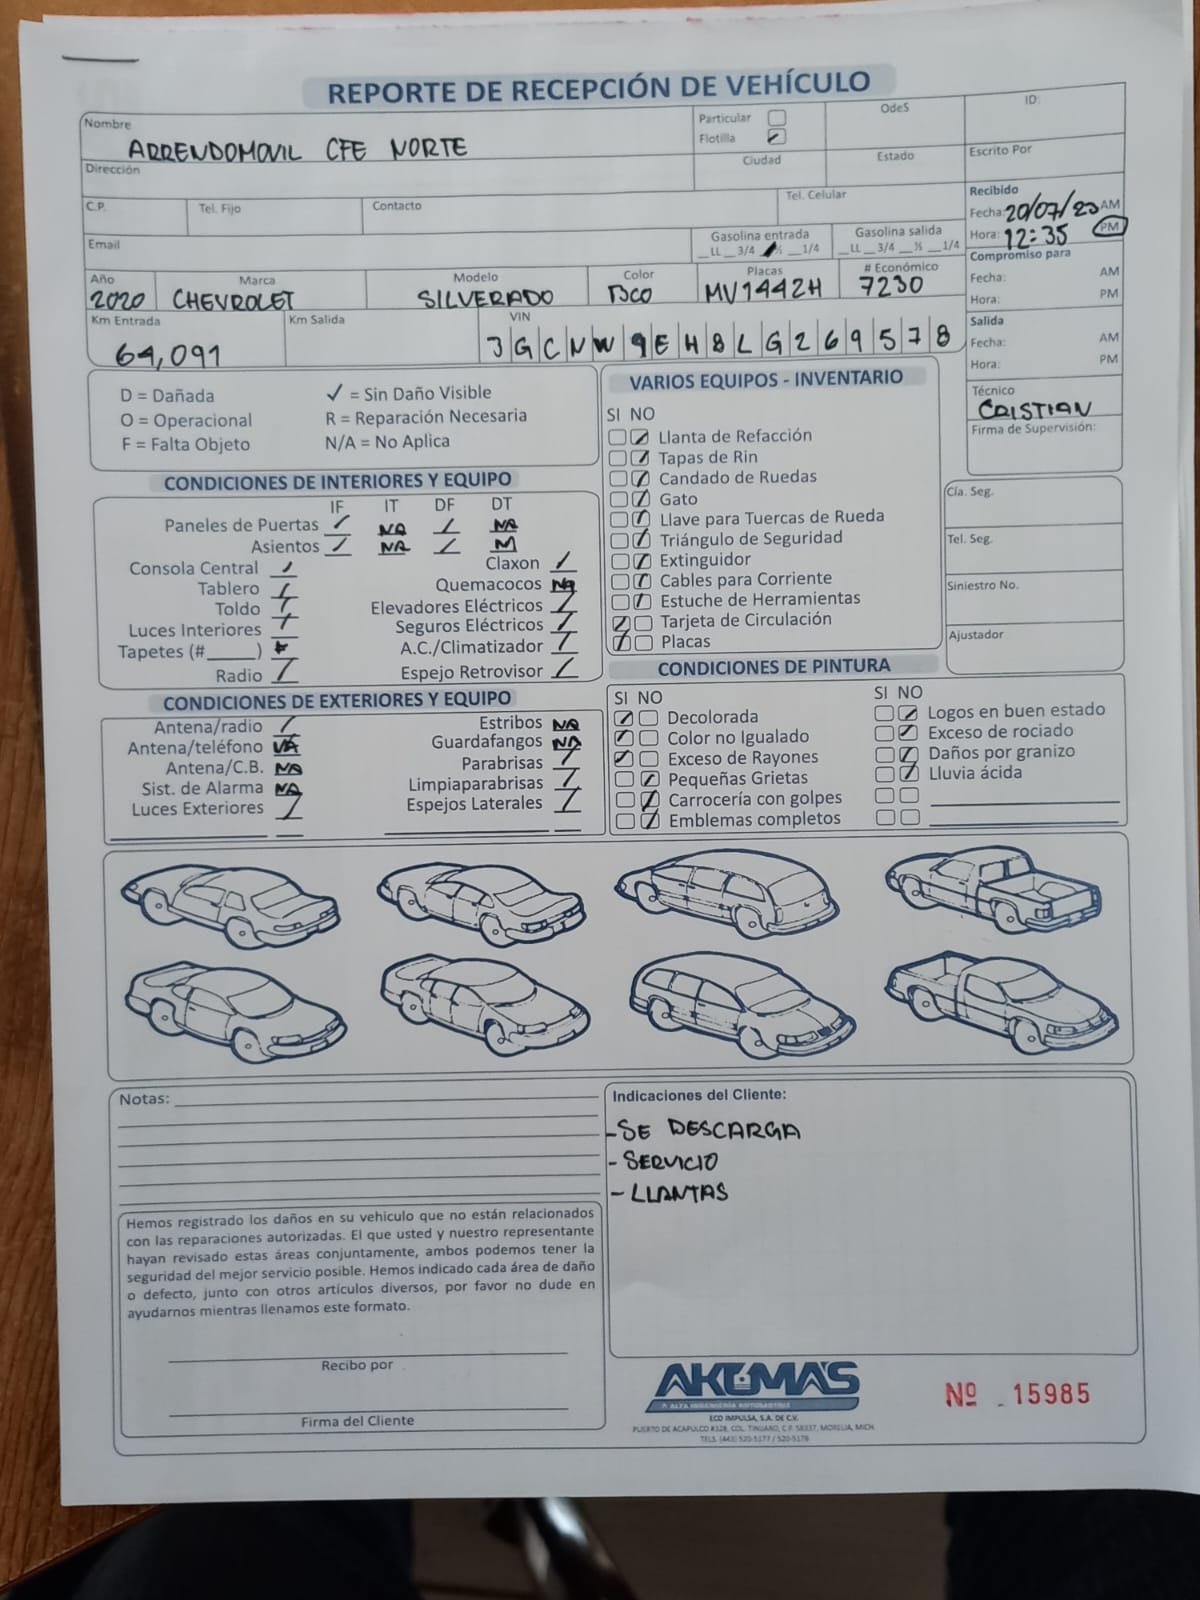 REPORTE DE RECEPCIÓN DE VEHÍCULO
Nombre
ARRENDOMOVIL CFE NORTE
Particular
Flotilla
OdeS
ID:
Dirección
Ciudad
Estado
Escrito Por
C.P.
Tel. Fijo
Contacto
Tel. Celular
Recibido
Fecha: 20/07/23 AM
Hora: 12:35 PM
Email
Gasolina entrada
__LL __3/4 __½ __1/4
Gasolina salida
__LL __3/4 __½ __1/4
Compromiso para
Fecha: AM
Hora: PM
Año
2020
Marca
CHEVROLET
Modelo
SILVERADO
Color
BCO
Placas
MV1442H
# Económico
7230
Km Entrada
64,091
Km Salida
VIN
3GCNW9EH8LG269578
Salida
Fecha: AM
Hora: PM
Técnico
CRISTIAN
Firma de Supervisión:
D = Dañada
✓ = Sin Daño Visible
O = Operacional
R = Reparación Necesaria
F = Falta Objeto
N/A = No Aplica
CONDICIONES DE INTERIORES Y EQUIPO
IF IT DF DT
Paneles de Puertas ✓ NA ✓ NA
Asientos ✓ NA ✓
Consola Central ✓
Tablero ✓
Toldo ✓
Luces Interiores ✓
Tapetes (#_____)
Radio ✓
Claxon ✓
Quemacocos NA
Elevadores Eléctricos ✓
Seguros Eléctricos ✓
A.C./Climatizador ✓
Espejo Retrovisor ✓
CONDICIONES DE EXTERIORES Y EQUIPO
Antena/radio ✓
Antena/teléfono NA
Antena/C.B. NA
Sist. de Alarma NA
Luces Exteriores ✓
Estribos NA
Guardafangos NA
Parabrisas ✓
Limpiaparabrisas ✓
Espejos Laterales ✓
VARIOS EQUIPOS - INVENTARIO
SI NO
Llanta de Refacción
Tapas de Rin
Candado de Ruedas
Gato
Llave para Tuercas de Rueda
Triángulo de Seguridad
Extinguidor
Cables para Corriente
Estuche de Herramientas
Tarjeta de Circulación
Placas
Cía. Seg.
Tel. Seg.
Siniestro No.
Ajustador
CONDICIONES DE PINTURA
SI NO
Decolorada
Color no Igualado
Exceso de Rayones
Pequeñas Grietas
Carrocería con golpes
Emblemas completos
SI NO
Logos en buen estado
Exceso de rociado
Daños por granizo
Lluvia ácida
Notas:
Indicaciones del Cliente:
-SE DESCARGA
- SERVICIO
- LLANTAS
Hemos registrado los daños en su vehiculo que no están relacionados
con las reparaciones autorizadas. El que usted y nuestro representante
hayan revisado estas áreas conjuntamente, ambos podemos tener la
seguridad del mejor servicio posible. Hemos indicado cada área de daño
o defecto, junto con otros artículos diversos, por favor no dude en
ayudarnos mientras llenamos este formato.
Recibo por
Firma del Cliente
AKUMA'S
ALTA INGENIERÍA AUTOMOTRIZ
ECO IMPULSA, S.A. DE C.V.
PUERTO DE ACAPULCO #328, COL. TINIJARO, C.P. 58337, MORELIA, MICH.
TELS. (443) 520-5177 / 520-5178
Nº 15985